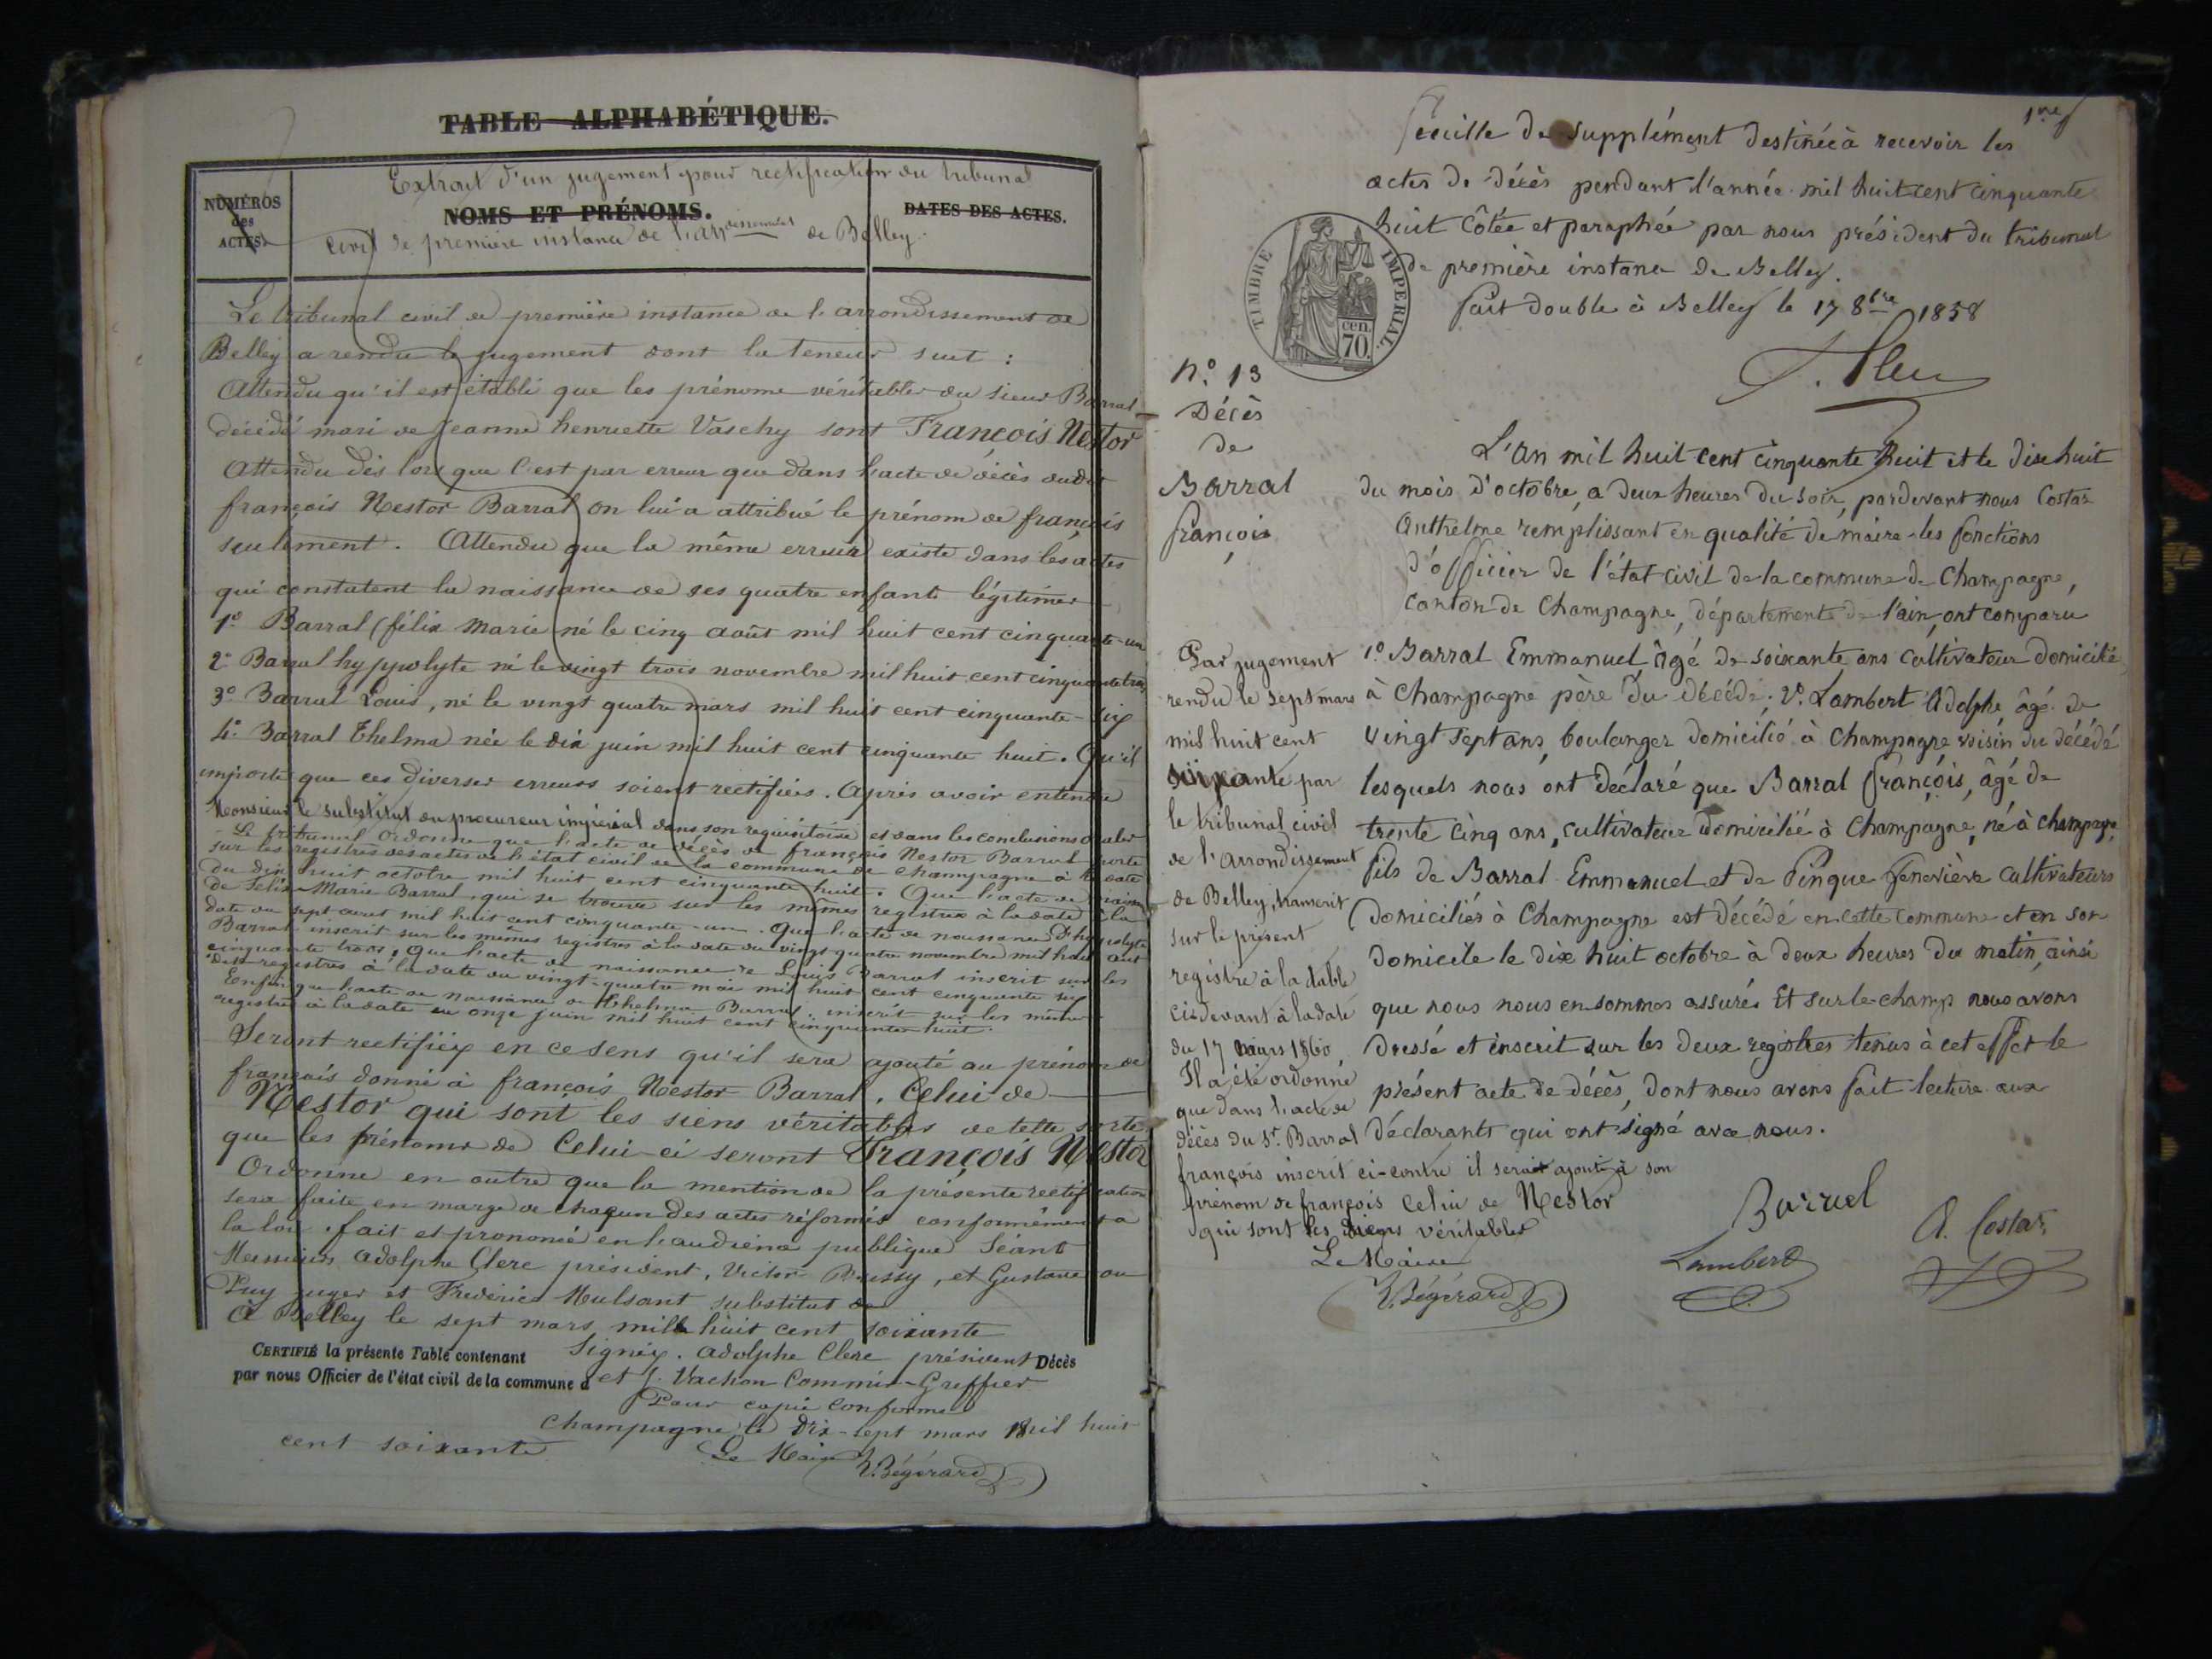 TABLE ALPHABÉTIQUE.
NUMÉROS des ACTES.
Extrait d'un jugement pour rectification du tribunal
NOMS ET PRÉNOMS.
DATES DES ACTES.
civil de première instance de l'arrondissement de Belley.
Le tribunal civil de première instance de l'arrondissement de
Belley a rendu le jugement dont la teneur suit :
Attendu qu'il est établi que les prénoms véritables du sieur Barral
décédé mari de Jeanne henriette Vaschy sont François Nestor
Attendu dès lors que c'est par erreur que dans l'acte de décès dudit
françois Nestor Barral on lui a attribué le prénom de françois
seulement. Attendu que la même erreur existe dans les actes
qui constatent la naissance de ses quatre enfants légitimes
1º Barral (félix Marie né le cinq août mil huit cent cinquante-un
2º Barral hyppolyte né le vingt trois novembre mil huit cent cinquante trois
3º Barral Louis, né le vingt quatre mars mil huit cent cinquante-six
4º Barral Thelma née le dix juin mil huit cent cinquante huit. Qu'il
importe que ces diverses erreurs soient rectifiées. Après avoir entendu
Monsieur le substitut du procureur impérial dans son réquisitoire et dans les conclusions
Le tribunal ordonne que l'acte de décès de françois Nestor Barral porté
sur les registres des actes de l'état civil de la commune de Champagne à la date
du dix huit octobre mil huit cent cinquante huit. Que l'acte de naissance
de Félix-Marie Barral, qui se trouve sur les mêmes registres à la date à la
date du sept août mil huit cent cinquante-un. Que l'acte de naissance d'hyppolyte
Barral inscrit sur les mêmes registres à la date du vingt-quatre novembre mil huit cent
cinquante trois, que l'acte de naissance de Louis Barral inscrit sur les
dits registres à la date du vingt-quatre mai mil huit cent cinquante six
Enfin que l'acte de naissance de Thelma Barral, inscrit sur les mêmes
registres à la date du onze juin mil huit cent cinquante huit.
Seront rectifiés en ce sens qu'il sera ajouté au prénom de
français donné à françois Nestor Barral, Celui de
Nestor qui sont les siens véritables de cette sorte
que les prénoms de Celui-ci seront François Nestor
Ordonne en outre que la mention de la présente rectification
sera faite en marge de chacun des actes réformés conformément à
la loi. fait et prononcé en l'audience publique Séant
Messieurs Adolphe Clerc président, Victor Brussy, et Gustave du
Puy juges et Frédéric Mulsant substitut de
à Belley le sept mars mille huit cent soixante
CERTIFIÉ la présente Table contenant Signés. Adolphe Clerc président Décès
par nous Officier de l'état civil de la commune d et J. Vachon Commis-Greffier
Pour copie conforme
Champagne, le dix-sept mars mil huit
cent soixante Le Maire
V. Bégérard
1re
feuille de supplément destinée à recevoir les
actes de décès pendant l'année mil huit cent cinquante
huit côtée et paraphée par nous président du tribunal
de première instance de Belley.
fait double à Belley le 17 8bre 1858
TIMBRE IMPERIAL.
cen. 70.
Nº 13
Décès
de
Barral
françois
L'An mil huit cent cinquante huit et le dix huit
du mois d'octobre, a deux heures du soir, pardevant nous Costaz
Anthelme remplissant en qualité de maire les fonctions
d'officier de l'état civil de la commune de Champagne,
canton de Champagne, département de l'ain, ont comparu
1º Barral Emmanuel, âgé de soixante ans cultivateur domicilié
à Champagne père du décédé; 2º Lambert Adolphe âgé de
vingt sept ans, boulanger domicilié à Champagne voisin du décédé
lesquels nous ont déclaré que Barral françois, âgé de
trente cinq ans, cultivateur domicilié à Champagne, né à Champagne
fils de Barral Emmanuel et de Pingue Geneviève cultivateurs
domiciliés à Champagne est décédé en cette commune et en son
domicile le dix huit octobre à deux heures du matin, ainsi
que nous nous en sommes assurés Et sur le champ nous avons
dressé et inscrit sur les deux registres tenus à cet effet le
présent acte de décès, dont nous avons fait lecture aux
déclarants qui ont signé avec nous.
Barral
A. Costaz
Lambert
Par jugement
rendu le sept mars
mil huit cent
soixante par
le tribunal civil
de l'arrondissement
de Belley, transcrit
sur le présent
registre à la table
ci-devant à la date
du 17 mars 1860,
Il a été ordonné
que dans l'acte de
décès du Sr. Barral
françois inscrit ci-contre il serait ajouté à son
prénom de françois celui de Nestor
qui sont les siens véritables
Le Maire
V. Bégérard